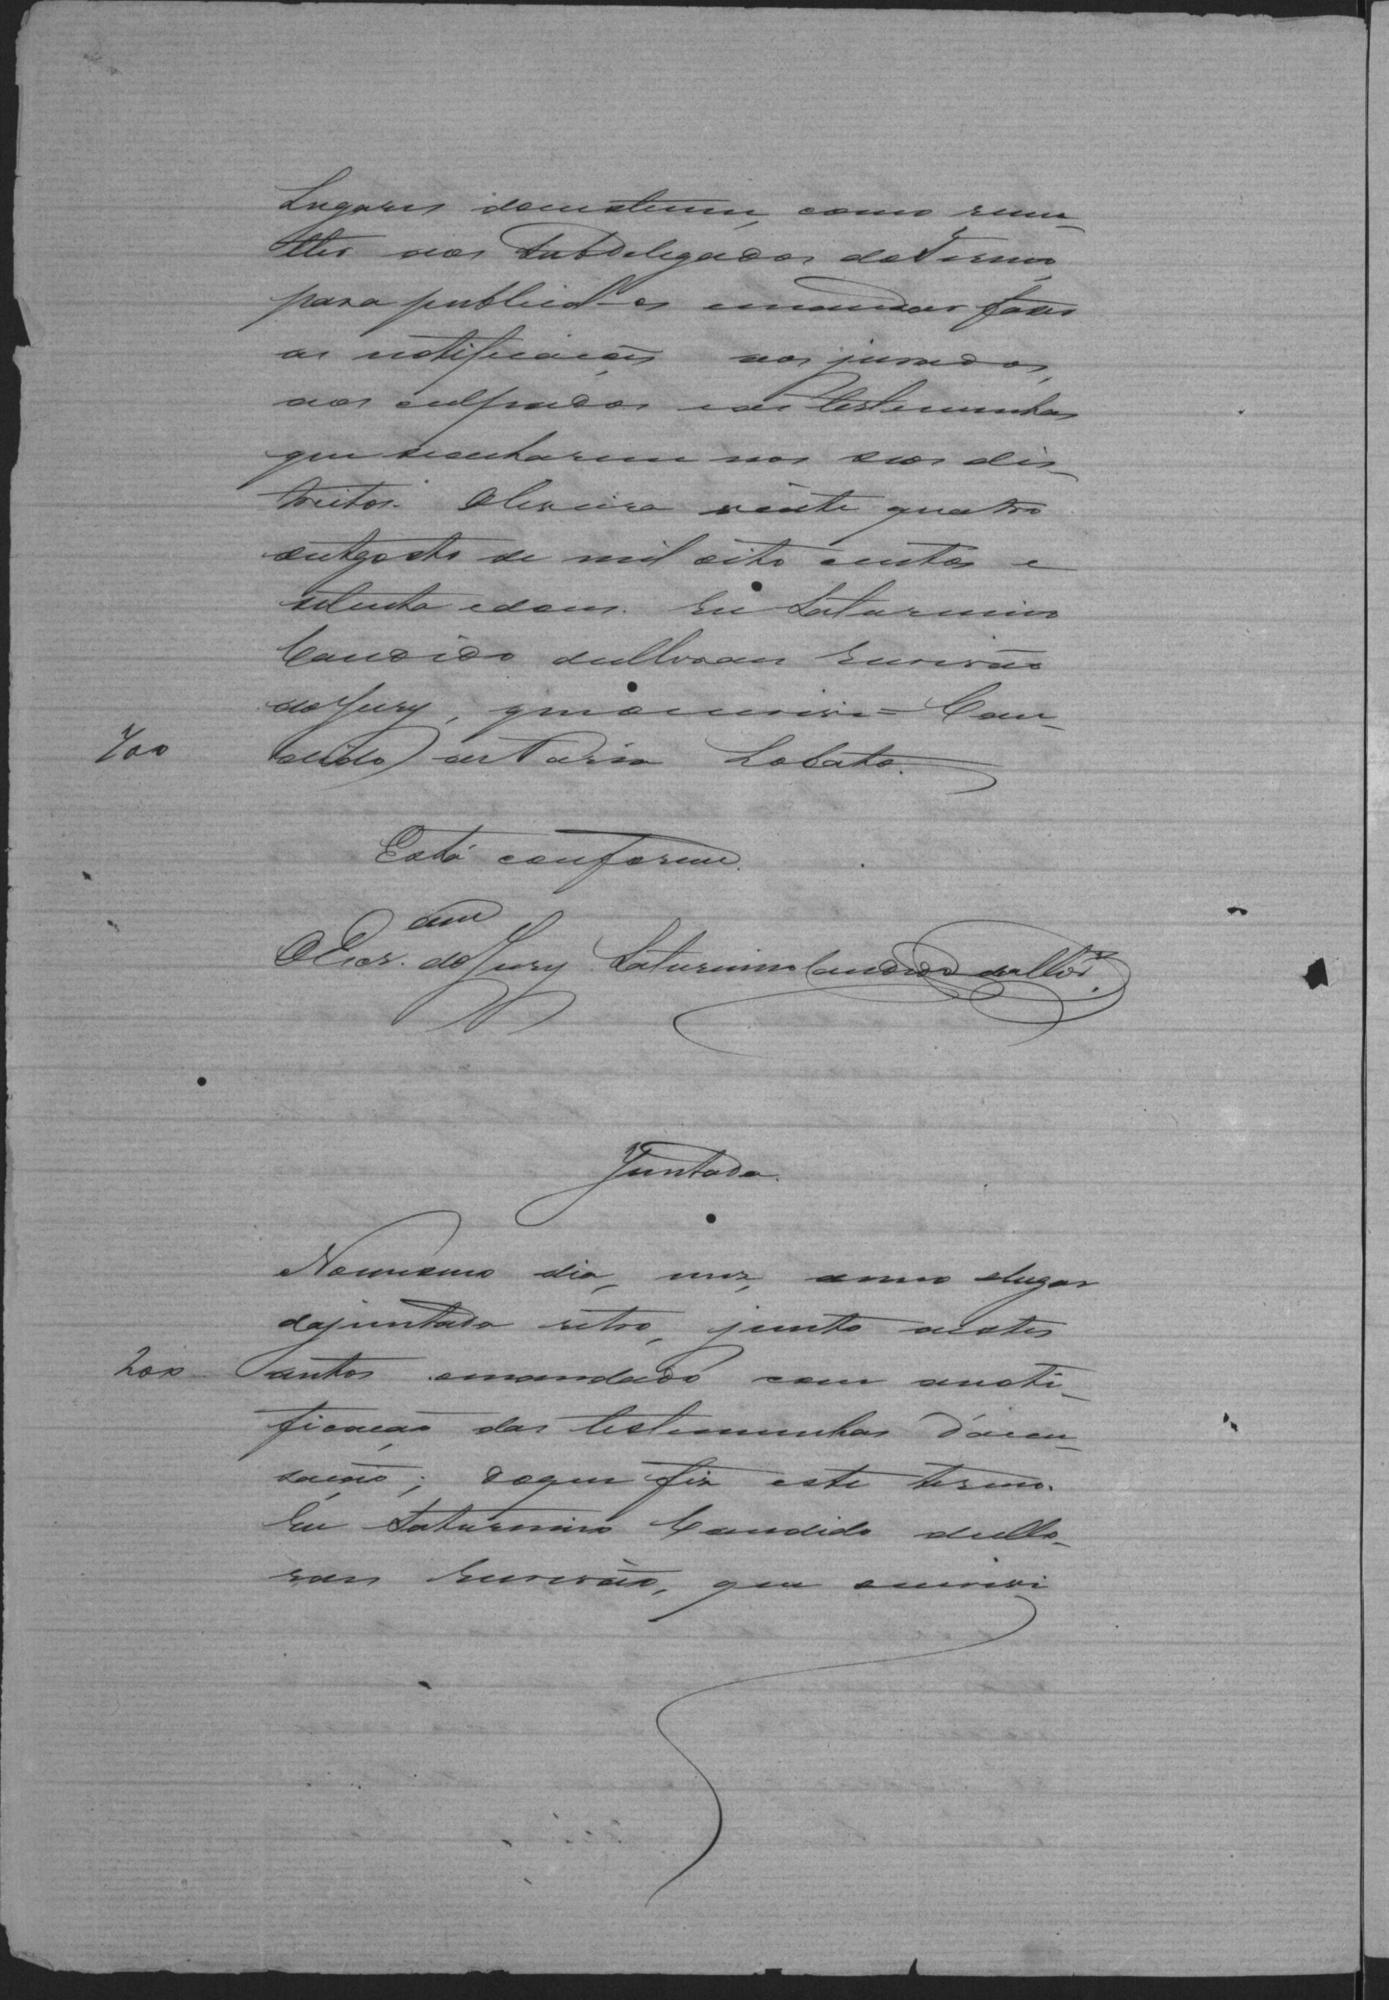 Lugares docustume, como reme-
tter aos Subdelegados doTermo
para publical-os emandar fazer
as notificações aos jurados,
aos culpados eas testemunhas
que seacharem nos seos dis-
trictos. Oliveira vinte quatro
deAgosto de mil oito centos e
setenta edous. Eu Saturnino
Candido Escrivão
doJury, queoescrevi = Can-
dido de Faria Lobato.
700
Está conforme.
OEscr.am doJury Saturnino Candido
Juntada.
Nomesmo dia, mez, anno elugar
dajuntada retro, junto aestes
200 autos omandado com anoti-
ficação das testemunhas d'accu-
sação; doque fiz este termo.
Eu Saturnino Candido
Escrivão, que escrevi